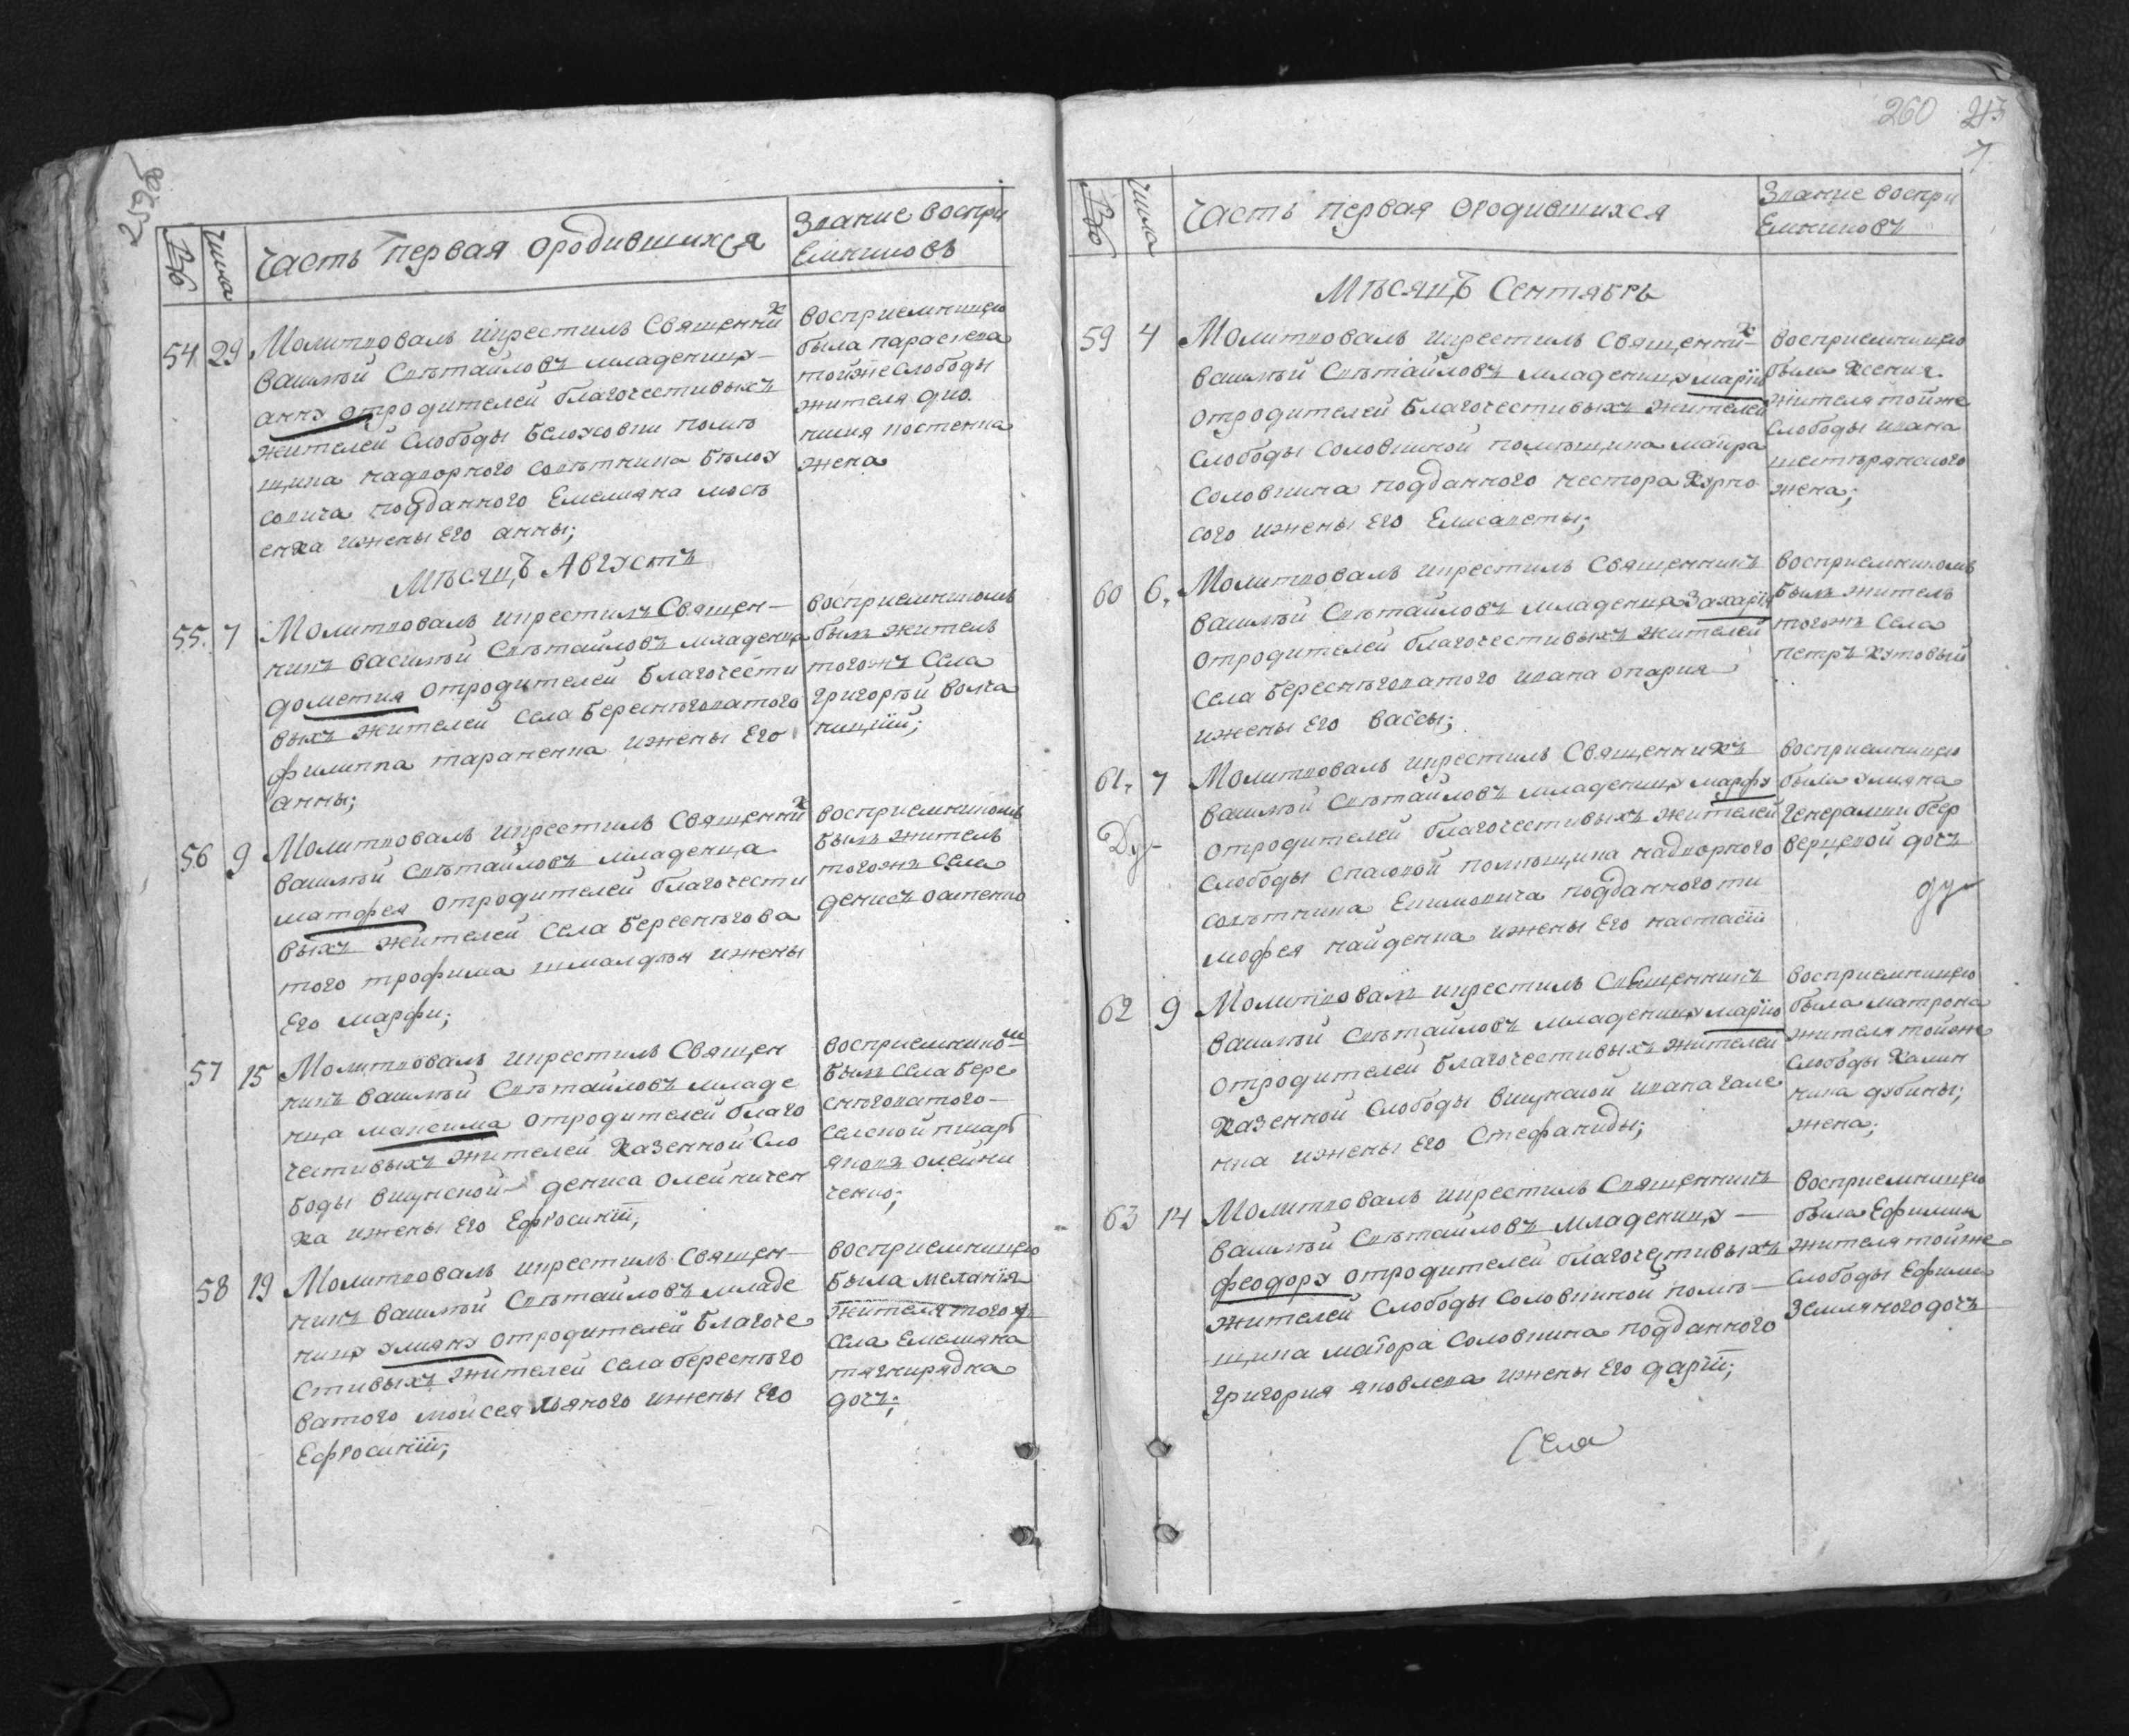 259об
№
Числа
Часть первая ородившихся
Звание воспри
Емниковъ
54 29 Молитвовалъ икрестилъ Священни к
Василий Светайловъ младеницу
анну отродителей благочестивыхъ
жителей Слободы Белоусовки поме
щика надворного советника Белоу
совича подданного Емелияна мось
енка ижены Его анны;
Восприемницею
была параскева
тойже Слободы
жителя дио
нисия костенка
жена
Месяцъ Августъ
55. 7 Молитвовалъ икрестилъ Священ
никъ василий Светайловъ младенца
дометия отродителей Благочести
выхъ жителей Села Береснеговатого
филиппа тараненка ижены Его
анны;
восприемникомъ
былъ житель
тогожъ Села
григорий волча
ницкий;
56 9 Молитвовалъ икрестилъ Священни к
василий Светайловъ младенца
матфея отродителей благочести
выхъ жителей Села Береснегова
того трофима шмалдея ижены
Его марфи;
восприемникомъ
былъ житель
тогожъ Села
денисъ
57 15 Молитвовалъ икрестилъ Священ
никъ василий Светайловъ младе
нца максима отродителей благо
честивыхъ жителей Казенной Сло
боды висунской дениса олейничен
ка ижены Его Ефросинїи;
восприемнико м
былъ села бере
снеговатого
Селской писарь
яковъ олейни
ченко;
58 19 Молитвовалъ икрестилъ Священ
никъ василий Светайловъ младе
ницу улияну отродителей Благоче
стивыхъ жителей села береснего
ватого мойсея Льяного ижены Его
Ефросинїи;
восприемницею
была меланїя
жителя того ж
села Емелияна
тягнирядна
дочъ;
260 243
7
№
Числа
Часть первая ородившихся
Звание воспри
Емниковъ
Месяцъ Сентябрь
59 4 Молитвовалъ икрестилъ Священни к
василий Светайловъ младеницу марїю
отродителей Благочестивыхъ жителей
Слободы Соловкиной помещика маиора
Соловкина подданного нестора Курно
сого ижены Его Елисаветы;
восприемницею
была Ксения
жителя тойже
Слободы ивана
жена;
60 6. Молитвовалъ икрестилъ Священникъ
василий Светайловъ младенца Захарїя
отродителей благочестивыхъ жителей
Села Береснеговатого ивана опария
ижены Его васеы;
восприемникомъ
былъ житель
тогожъ Села
петръ Кутовый
61. 7 Молитвовалъ икрестилъ Священникъ
василий Светайловъ младеницу марфу
отродителей благочестивыхъ жителей
Слободы Спаской помещика надворного
советника Екимовича подданного ти
мофея найденка ижены Его настасїи
восприемницею
была улияна
Генералки беер
верцевой дочъ
62 9 Молитвовалъ икрестилъ Священникъ
василий Светайловъ младеницу марїю
отродителей Благочестивыхъ жителей
Казенной Слободы висунской ивана гале
нка ижены Его Стефаниды;
восприемницею
была матрона
жителя тойже
Слободы Калин
ника дубины;
жена;
63 14 Молитвовалъ икрестилъ Священникъ
василий Светайловъ младеницу
феодору отродителей благочестивыхъ
жителей Слободы Соловкиной поме
щика маїора Соловкина подданного
григория яковлева ижены Его дарїи;
восприемницею
была Ефимия
жителя тойже
Слободы Ефима
Земляного дочъ